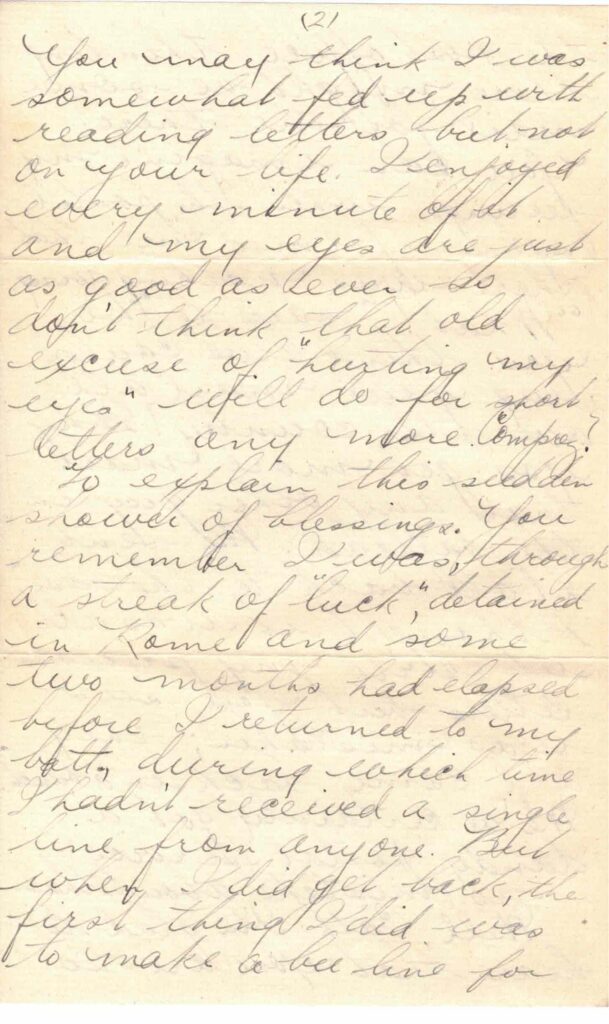 (2)
You may think I was
somewhat fed up with
reading letters but not
on your life. I enjoyed
every minute of it
and my eyes are just
as good as ever so
don't think that old
excuse of "hurting my
eyes" will do for short
letters any more. Comprez?
To explain this sudden
shower of blessings. You
remember I was, through
a streak of "luck", detained
in Rome and some
two months had elapsed
before I returned to my
batt., during which time
I hadn't received a single
line from anyone. But
when I did get back, the
first thing I did was
to make a bee line for